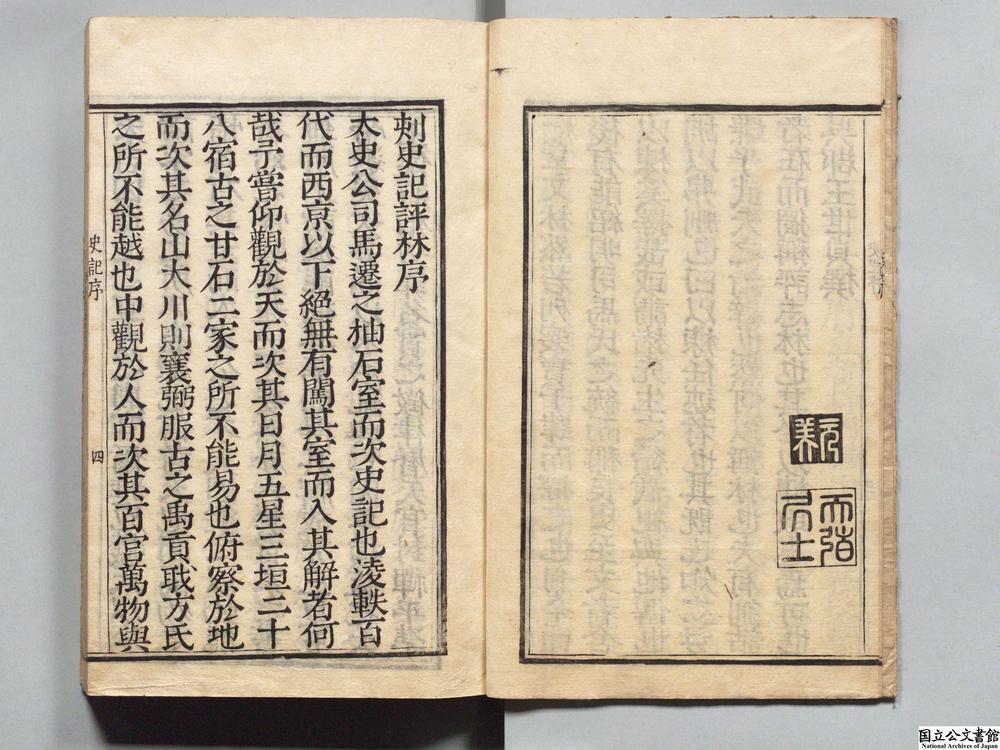 元美
天弢居士
刻史記評林序
太史公司馬遷之紬石室而次史記也淩軼百
代而西京以下絕無有闖其室而入其解者何
哉予嘗仰觀於天而次其日月五星三垣二十
八宿古之甘石二家之所不能易也俯察於地
而次其名山大川則襄弼服古之禹貢職方氏
之所不能越也中觀於人而次其百官萬物與
史記序
四
国立公文書館
National Archives of Japan